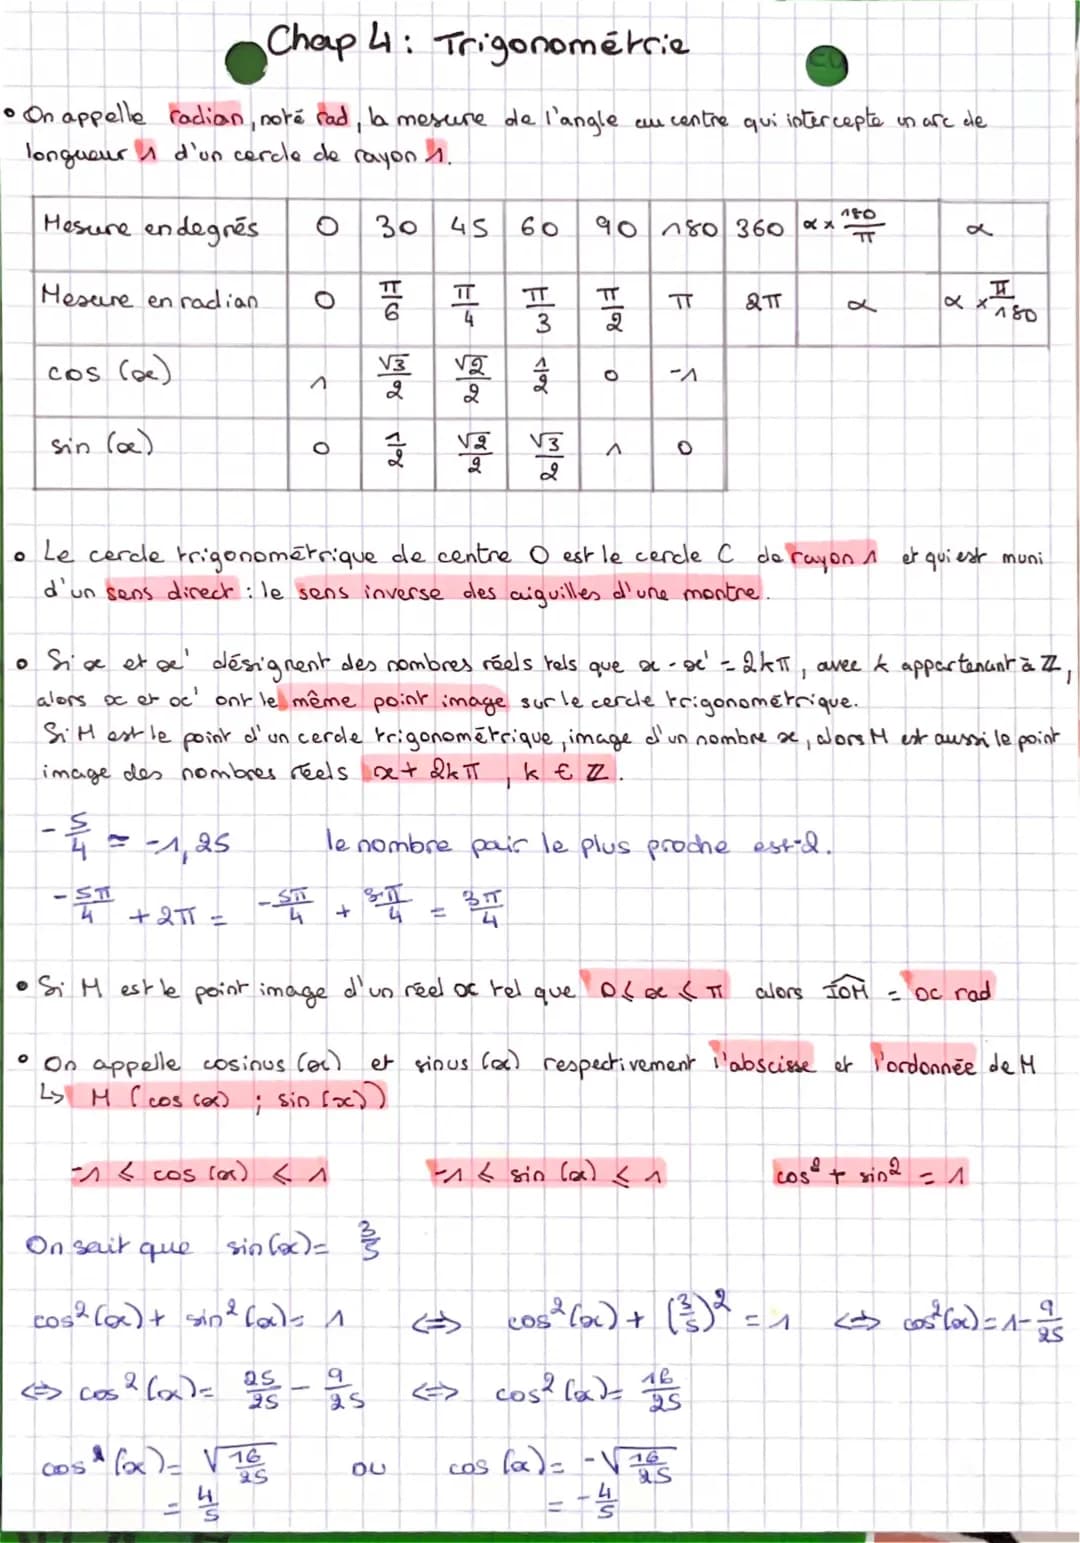 Chap 4 : Trigonométrie
• On appelle radian, noté rad, la mesure de l'angle au centre qui intercepte un arc de
longueur 1 d'un cercle de rayon 1.
Mesure en degrés 0 30 45 60 90 180 360 α × 180/π α
Mesure en radian 0 π/6 π/4 π/3 π/2 π 2π α α × π/180
cos (x) 1 √3/2 √2/2 1/2 0 -1
sin (x) 0 1/2 √2/2 √3/2 1 0
• Le cercle trigonométrique de centre O est le cercle C de rayon 1 et qui est muni
d'un sens direct : le sens inverse des aiguilles d'une montre.
• Si x et x' désignent des nombres réels tels que x - x' = 2kπ, avec k appartenant à ℤ,
alors x et x' ont le même point image sur le cercle trigonométrique.
Si M est le point d'un cercle trigonométrique, image d'un nombre x, alors M est aussi le point
image des nombres réels x + 2kπ, k ∈ ℤ.
-5/4 = -1,25 le nombre pair le plus proche est -2.
-5π/4 + 2π = -5π/4 + 8π/4 = 3π/4
• Si M est le point image d'un réel x tel que 0 ≤ x ≤ π alors IOM = x rad
• On appelle cosinus (x) et sinus (x) respectivement l'abscisse et l'ordonnée de M
↳ M (cos (x) ; sin (x))
-1 ≤ cos (x) ≤ 1 -1 ≤ sin (x) ≤ 1 cos² + sin² = 1
On sait que sin (x) = 3/5
cos² (x) + sin² (x) = 1 ⇔ cos² (x) + (3/5)² = 1 ⇔ cos² (x) = 1 - 9/25
⇔ cos² (x) = 25/25 - 9/25 ⇔ cos² (x) = 16/25
cos (x) = √16/25 ou cos (x) = -√16/25
= 4/5 = -4/5